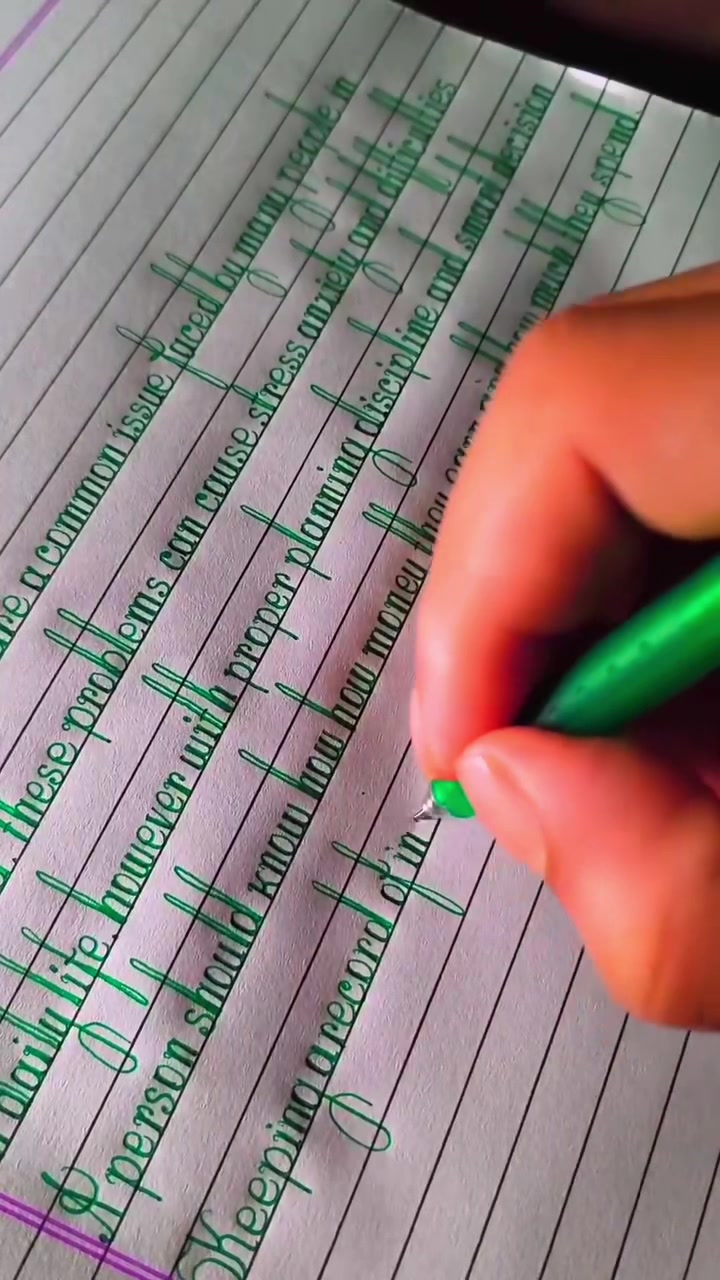 are a common issue faced by many people in
these problems can cause stress anxiety and difficulties
daily life, however with proper planning discipline and smart decision
A person should know how how money they earn and how much they spend.
Keeping a record of in